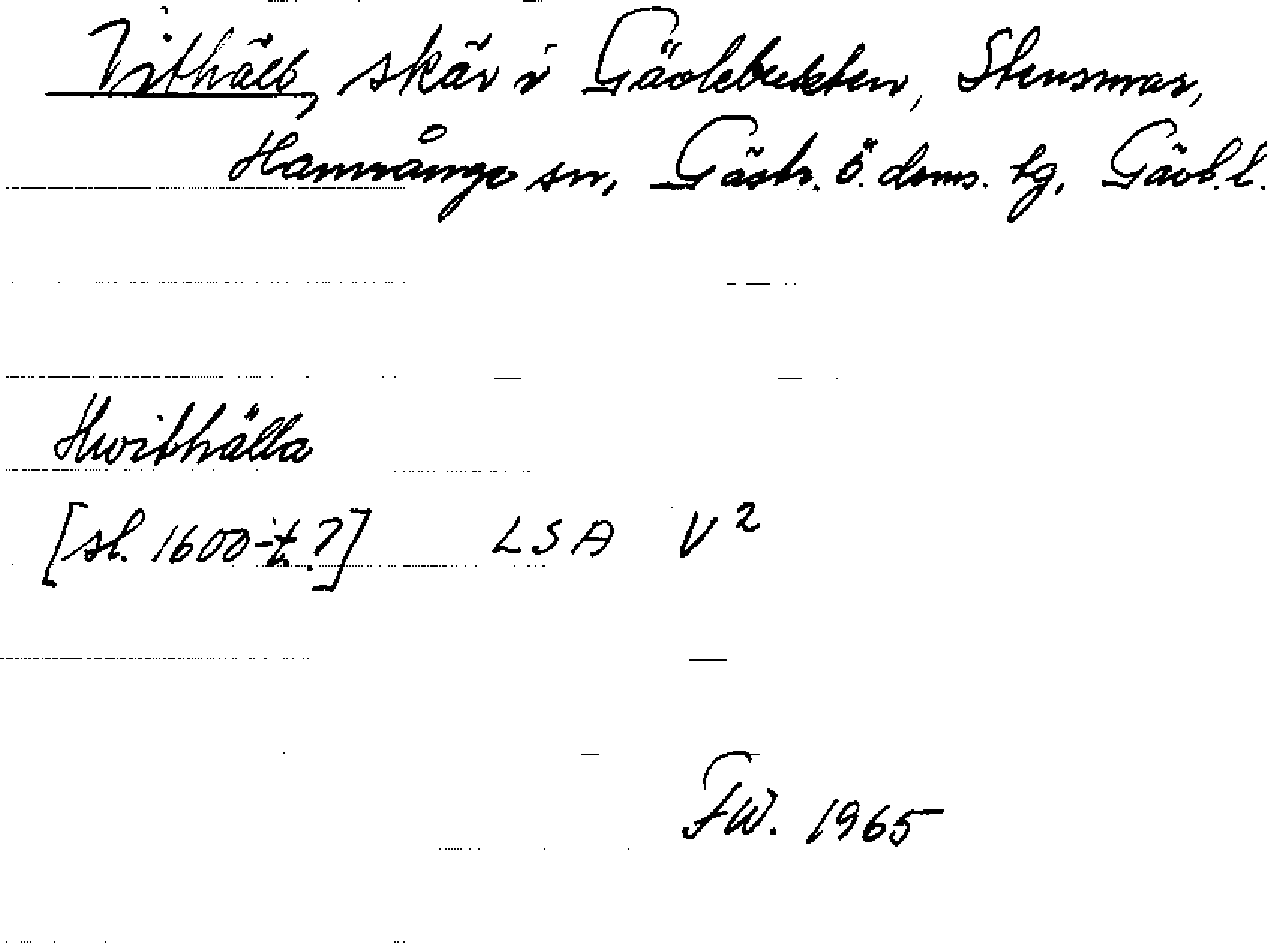 Vithäll, skär i Gävlebukten, Stensmar,
Hamrånge sn, Gästr. ö. doms. tg, Gävl. l.
Hwithälla
[sl. 1600-t.?] LSA V 2
FW. 1965